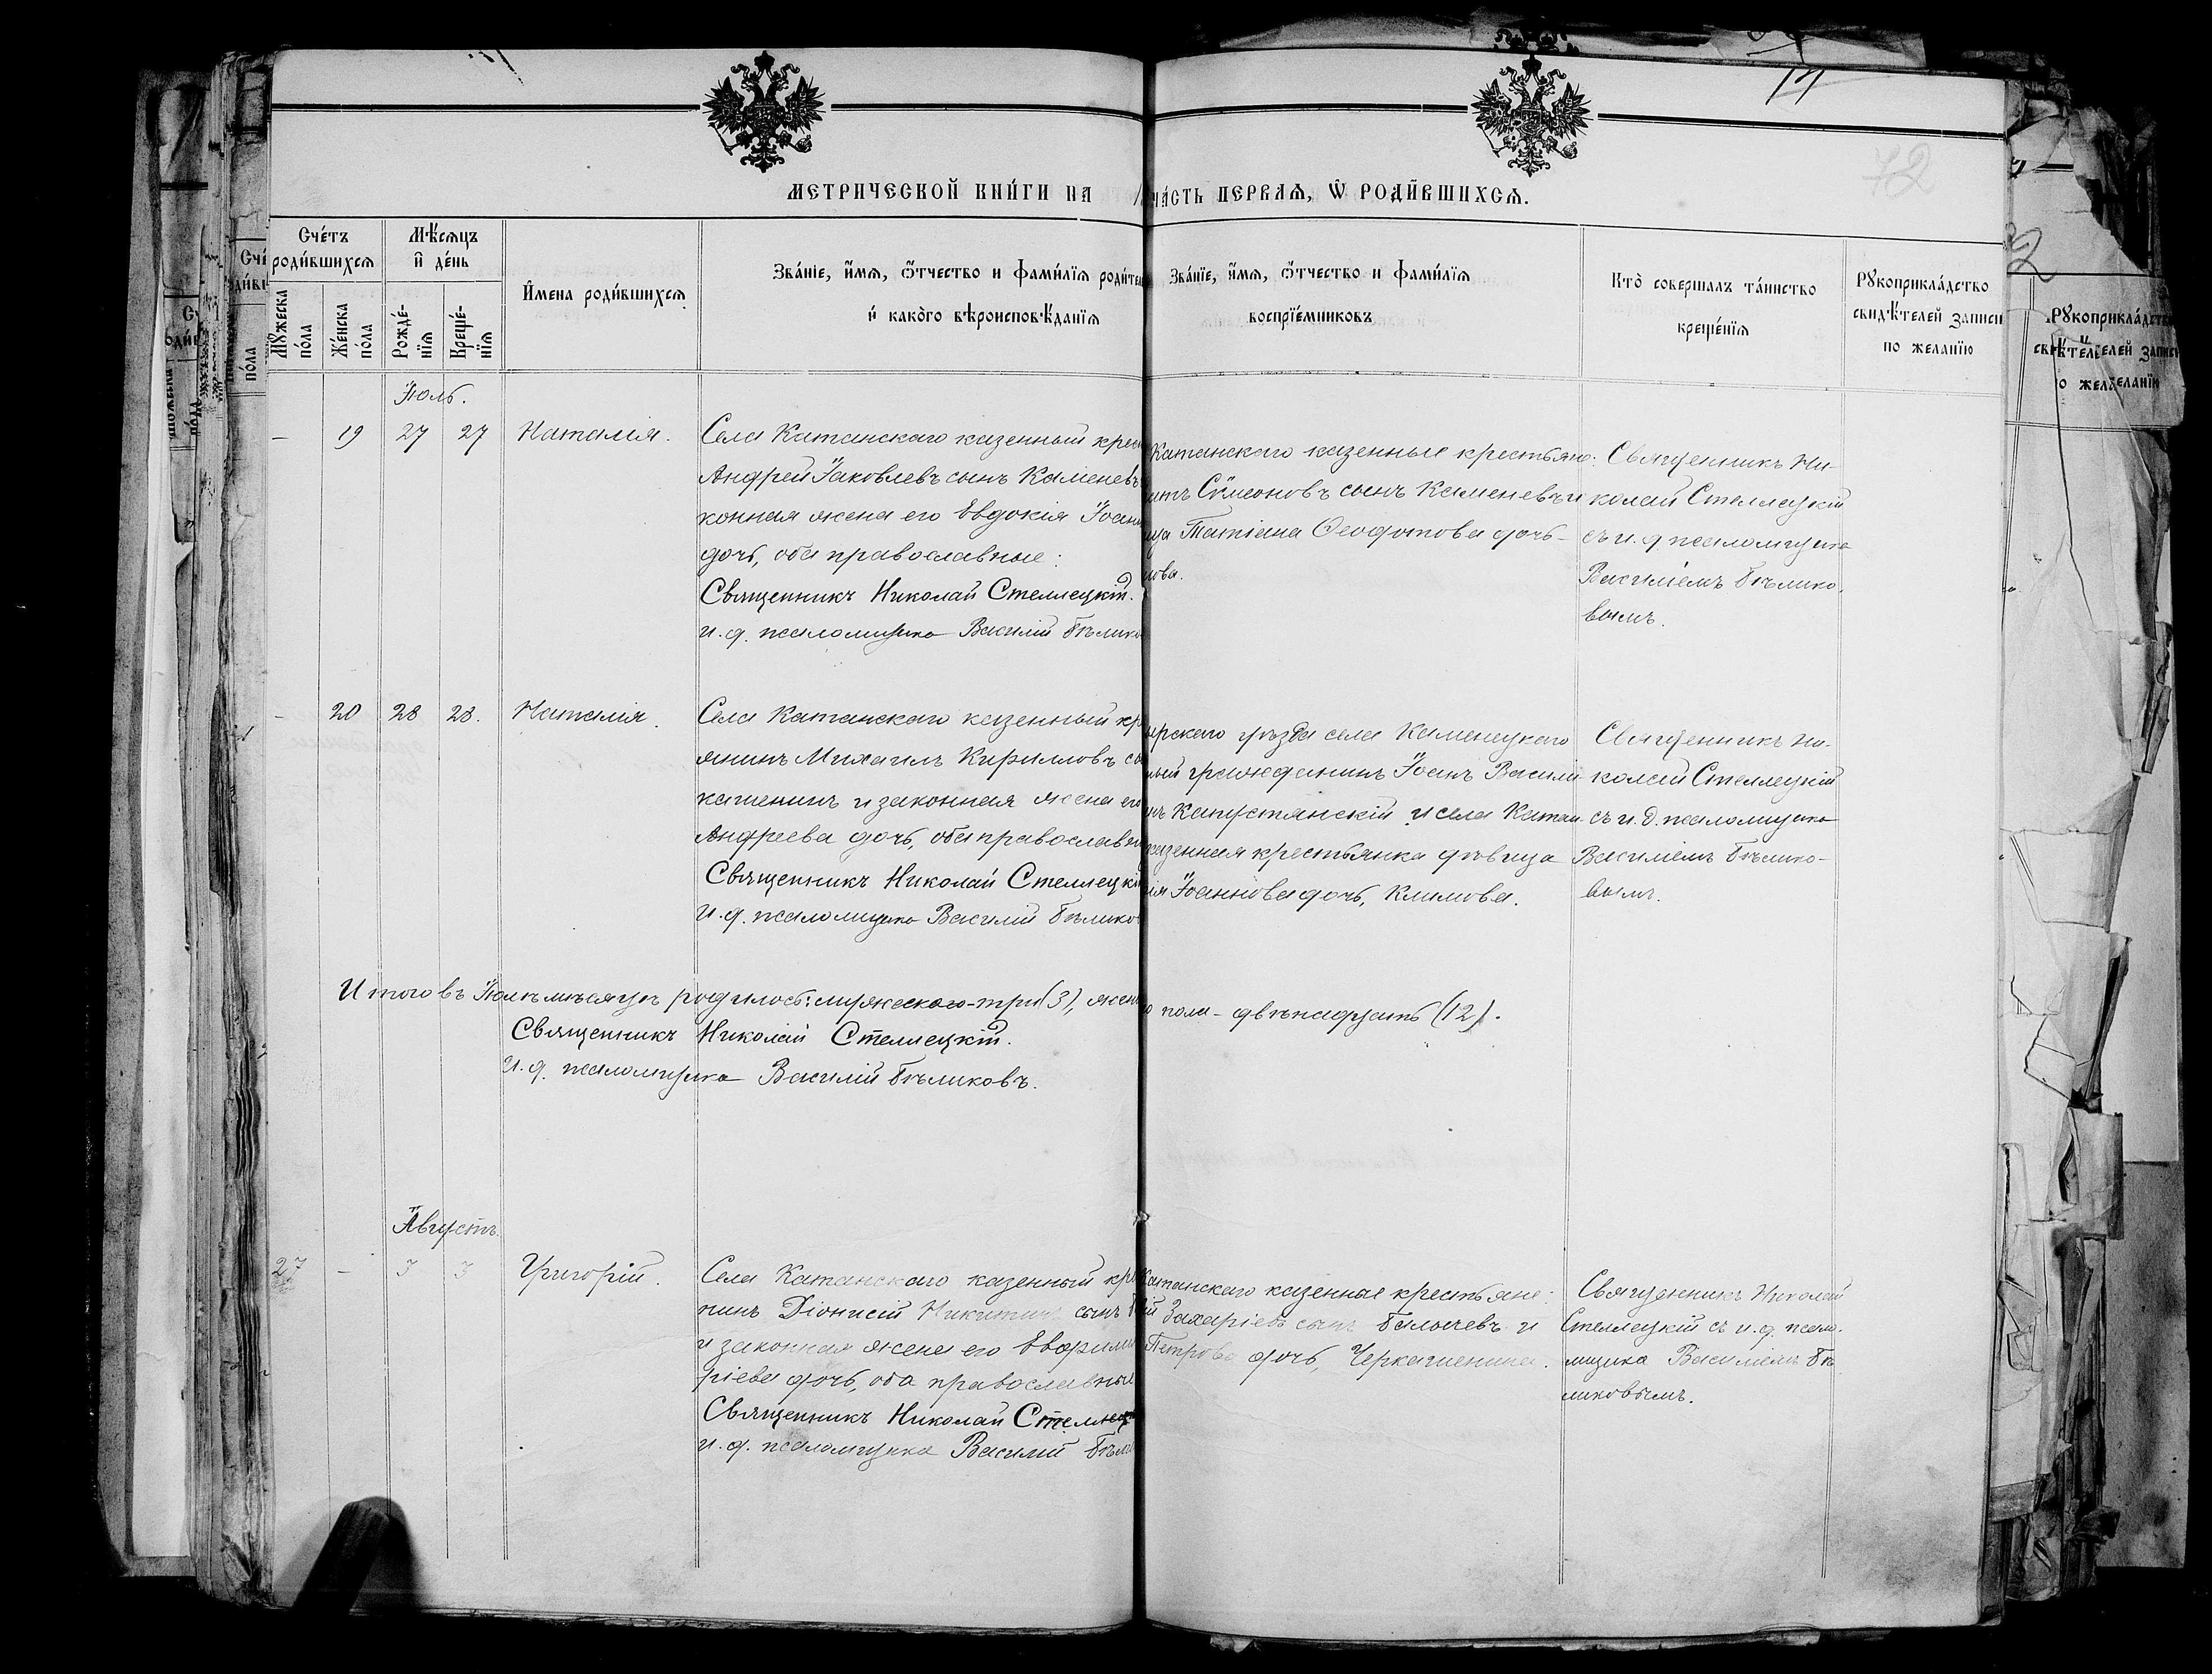 МЕТРИЧЕСКОЙ КНИ́ГИ НА
ЧА́СТЬ ПЕРВАѦ, Ѡ РОДИ́ВШИХСѦ.
72
Сче́тъ роди́вшихсѧ
Мꙋ́жеска по́ла
Же́нска по́ла
Мѣ́сѧцъ и҆ де́нь
Рожде́-нїѧ
Креще́-нїѧ
И҆мена роди́вшихсѧ
Зва́нїе, и҆́мѧ, ѻ҆́тчество и фами́лїѧ родите
и҆ како́го вѣроисповѣ́данїѧ
Зва́нїе, и҆́мѧ, ѻ҆́тчество и фами́лїѧ
воспрїе́мниковъ
Кто̀ совершалъ та́инство
креще́нїѧ
Рꙋкоприкла́дство
свидѣ́телей записи
по жела́нїю
Іюль.
– 19 27 27 Наталія.
Села Катанскаго казенный крес
Андрей Іаковлевъ сынъ Каменевъ
конная жена его Евдокія Іоан
дочь, оба православные:
Священникъ Николай Стеллецкій.
и. д. псаломщика Василій Бѣлико
Катанскаго казенные крестьяне:
Сѷмеоновъ сынъ Каменевъ и
ца Татіана Ѳеодотова дочь-
нова.
Священникъ Ни-
колай Стеллецкій
съ и. д псаломщика
Василіемъ Бѣлико-
вымъ.
– 20 28 28. Наталія.
Села Катанскаго казенный кр
янинъ Михаилъ Кирилловъ с
кашенинъ и законная жена его
Андреева дочь, оба православн
Священникъ Николай Стеллецкі
И. д. псаломщика Василій Бѣлико
ырскаго уѣзда села Каменецкаго
ный гражданинъ Іоанъ Васили
нъ Капустянскій и села Катан-
казенная крестьянка дѣвица
ія Іоаннова дочь, Климова.
Священникъ Ни-
колай Стеллецкій
съ и. д. псаломщика
Василіемъ Бѣлико-
вымъ.
Итого въ Іюлѣ мѣсяцѣ родилось: мужескаго-три (3), жен
о пола - двѣнадцать (12).
Священникъ Николай Стеллецкій.
И. д. псаломщика Василій Бѣликовъ.
Августъ.
27 – 3 3 Григорій.
Села Катанскаго казенный кре
нинъ Діонисій Никитинъ сынъ
и законная жена его Евфими
ріева дочь, оба православные
Священникъ Николай Стеллец
и. д. псаломщика Василій Бѣли
Катанскаго казенные крестьяне:
ій Захаріевъ сынъ Балычевъ и
Петрова дочь, Черкашенина.
Священникъ Николай
Стеллецкій съ и. д. псало-
мщика Василіемъ Бѣ
ликовымъ.